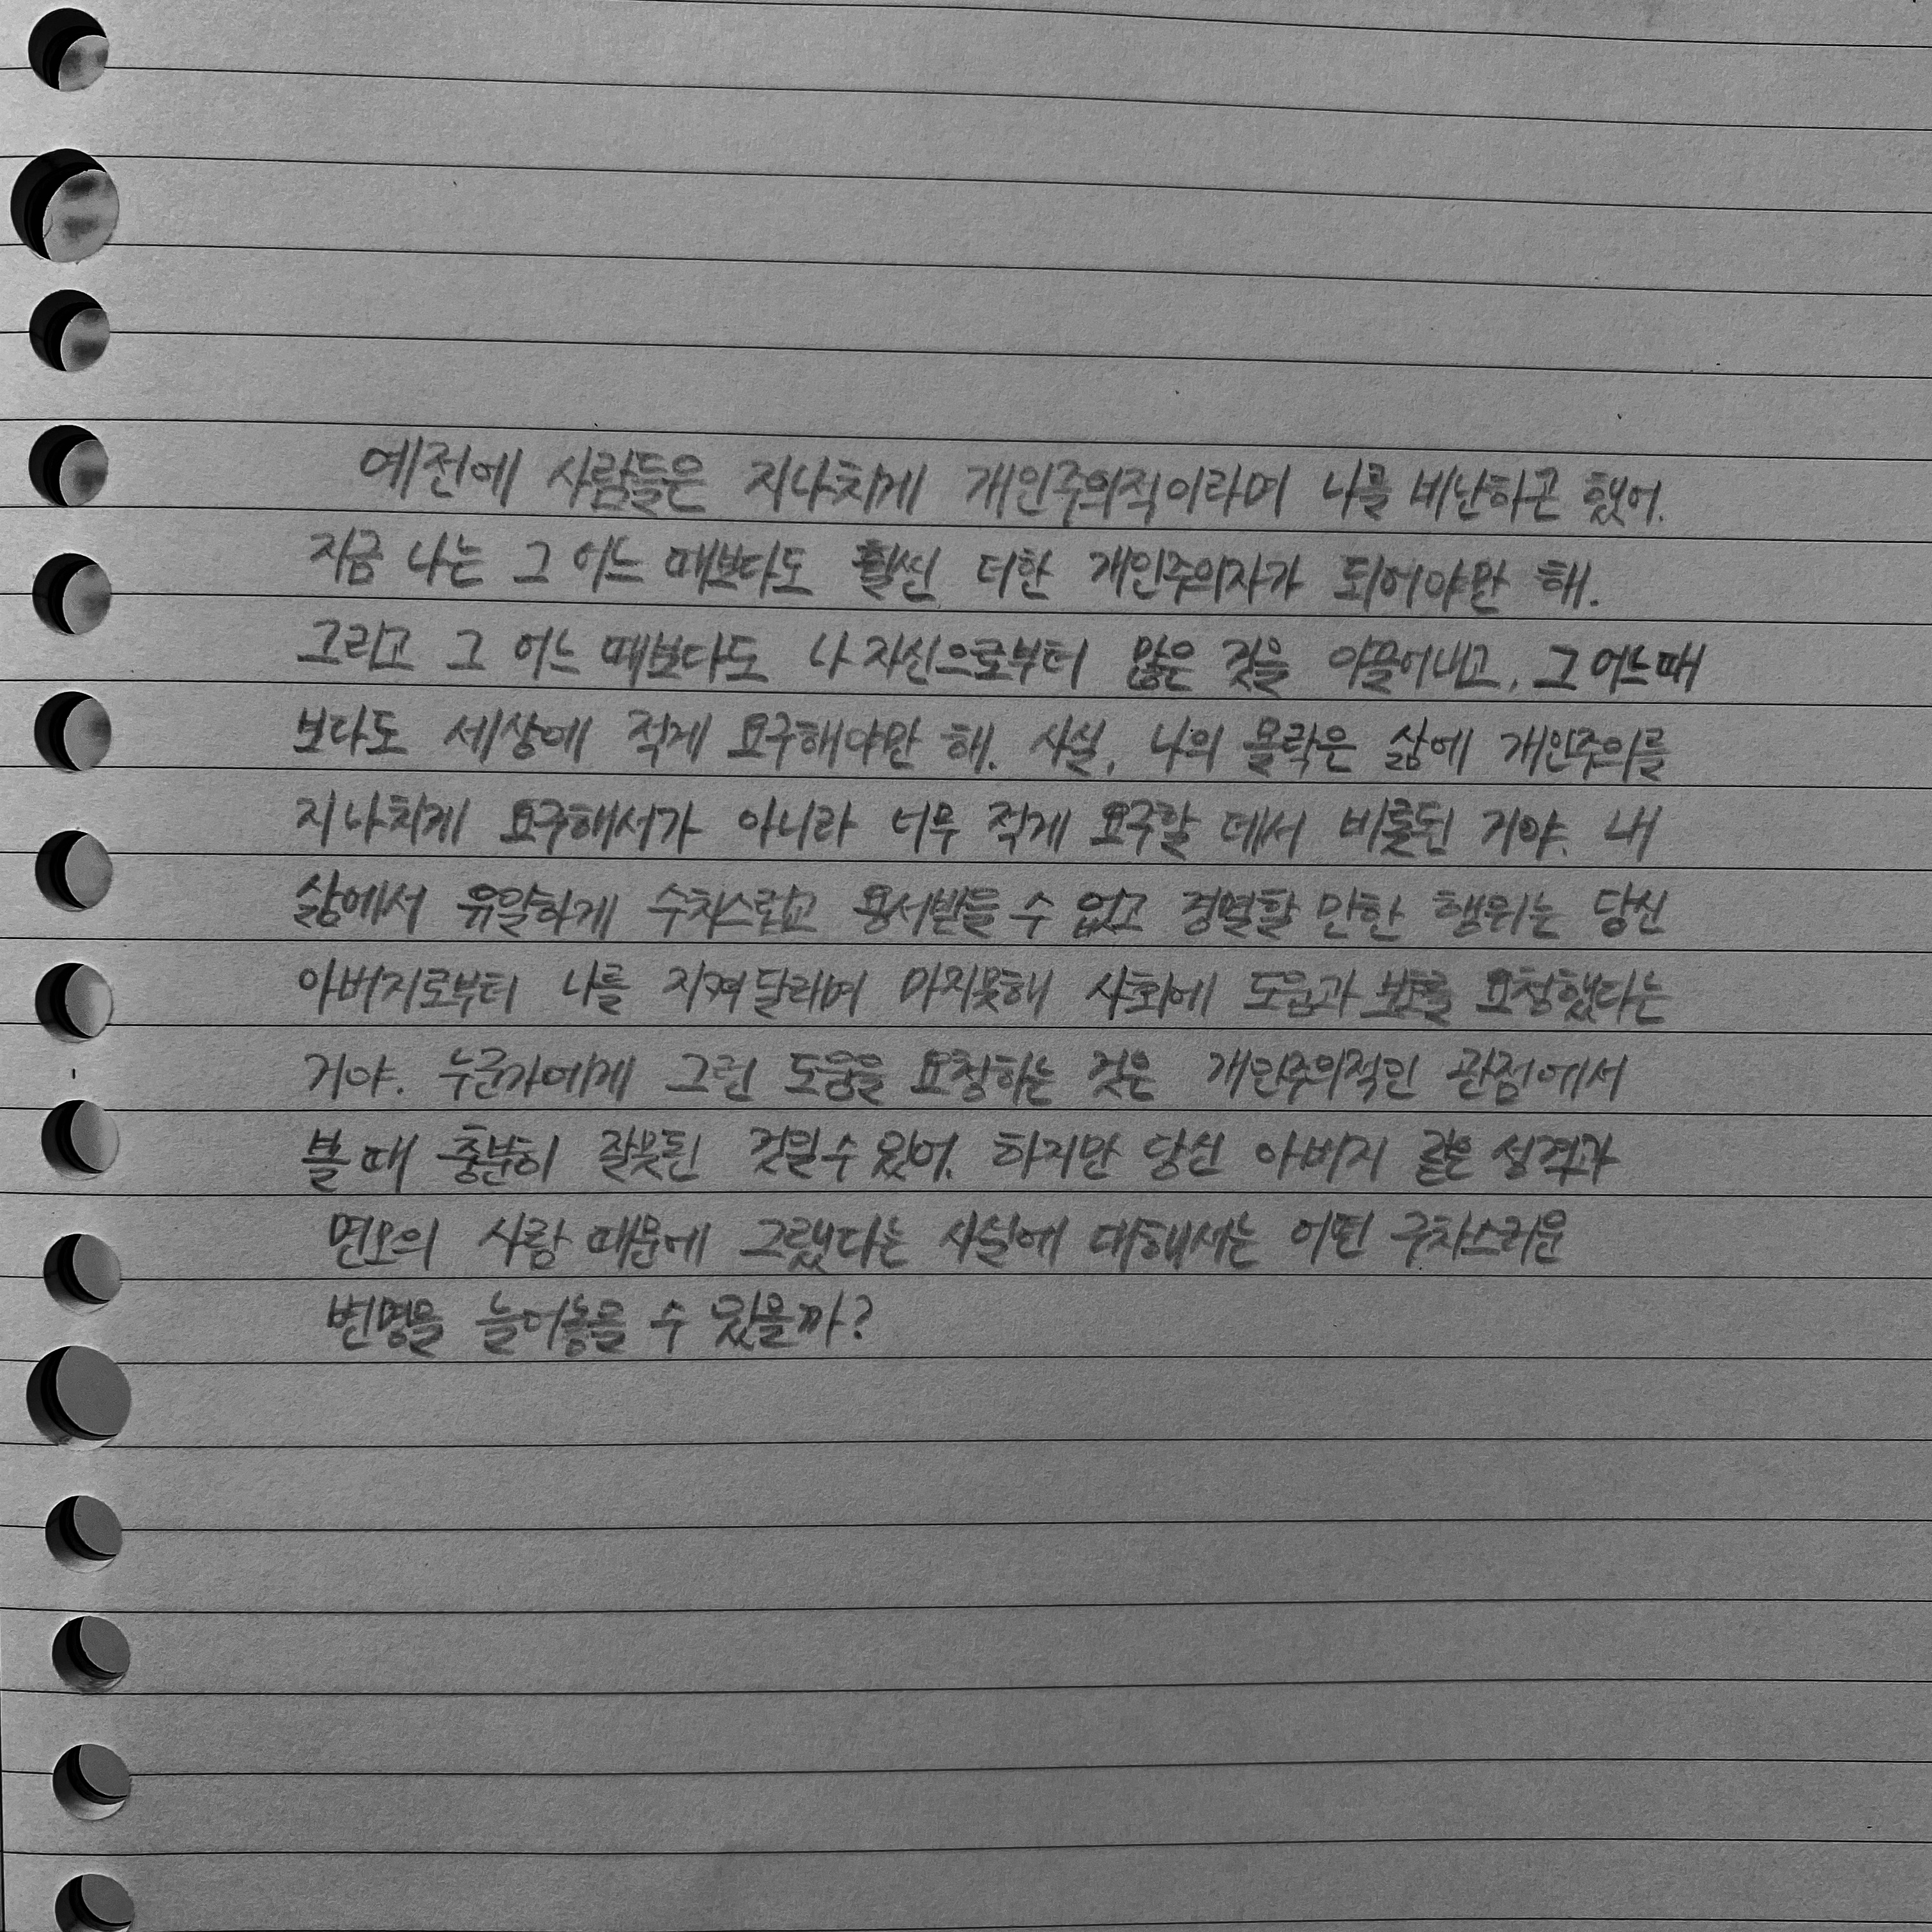 예전에 사람들은 지나치게 개인주의적이라며 나를 비난하곤 했어.
지금 나는 그 어느 때보다도 훨씬 더한 개인주의자가 되어야만 해.
그리고 그 어느 때보다도 나 자신으로부터 많은 것을 이끌어내고, 그 어느 때
보다도 세상에 적게 요구해야만 해. 사실, 나의 몰락은 삶에 개인주의를
지나치게 요구해서가 아니라 너무 적게 요구한 데서 비롯된 거야. 내
삶에서 유일하게 수치스럽고 용서받을 수 없고 경멸할 만한 행위는 당신
아버지로부터 나를 지켜달라며 마지못해 사회에 도움과 보호를 요청했다는
거야. 누군가에게 그런 도움을 요청하는 것은 개인주의적인 관점에서
볼 때 충분히 잘못된 것일 수 있어. 하지만 당신 아버지 같은 성격과
면모의 사람 때문에 그랬다는 사실에 대해서는 어떤 구차스러운
변명을 늘어놓을 수 있을까?